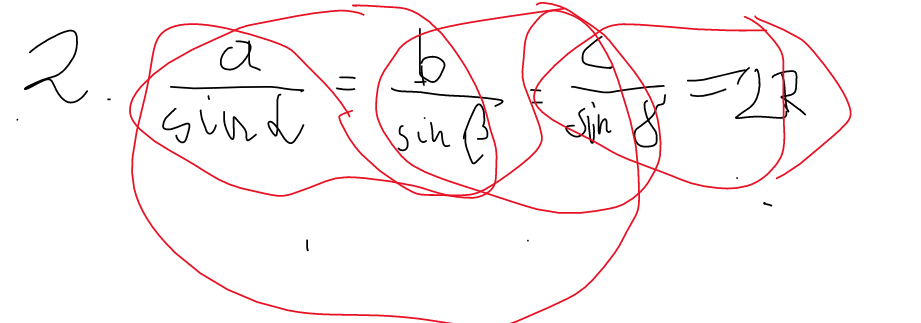 2. a/sin α = b/sin β = c/sin γ = 2R